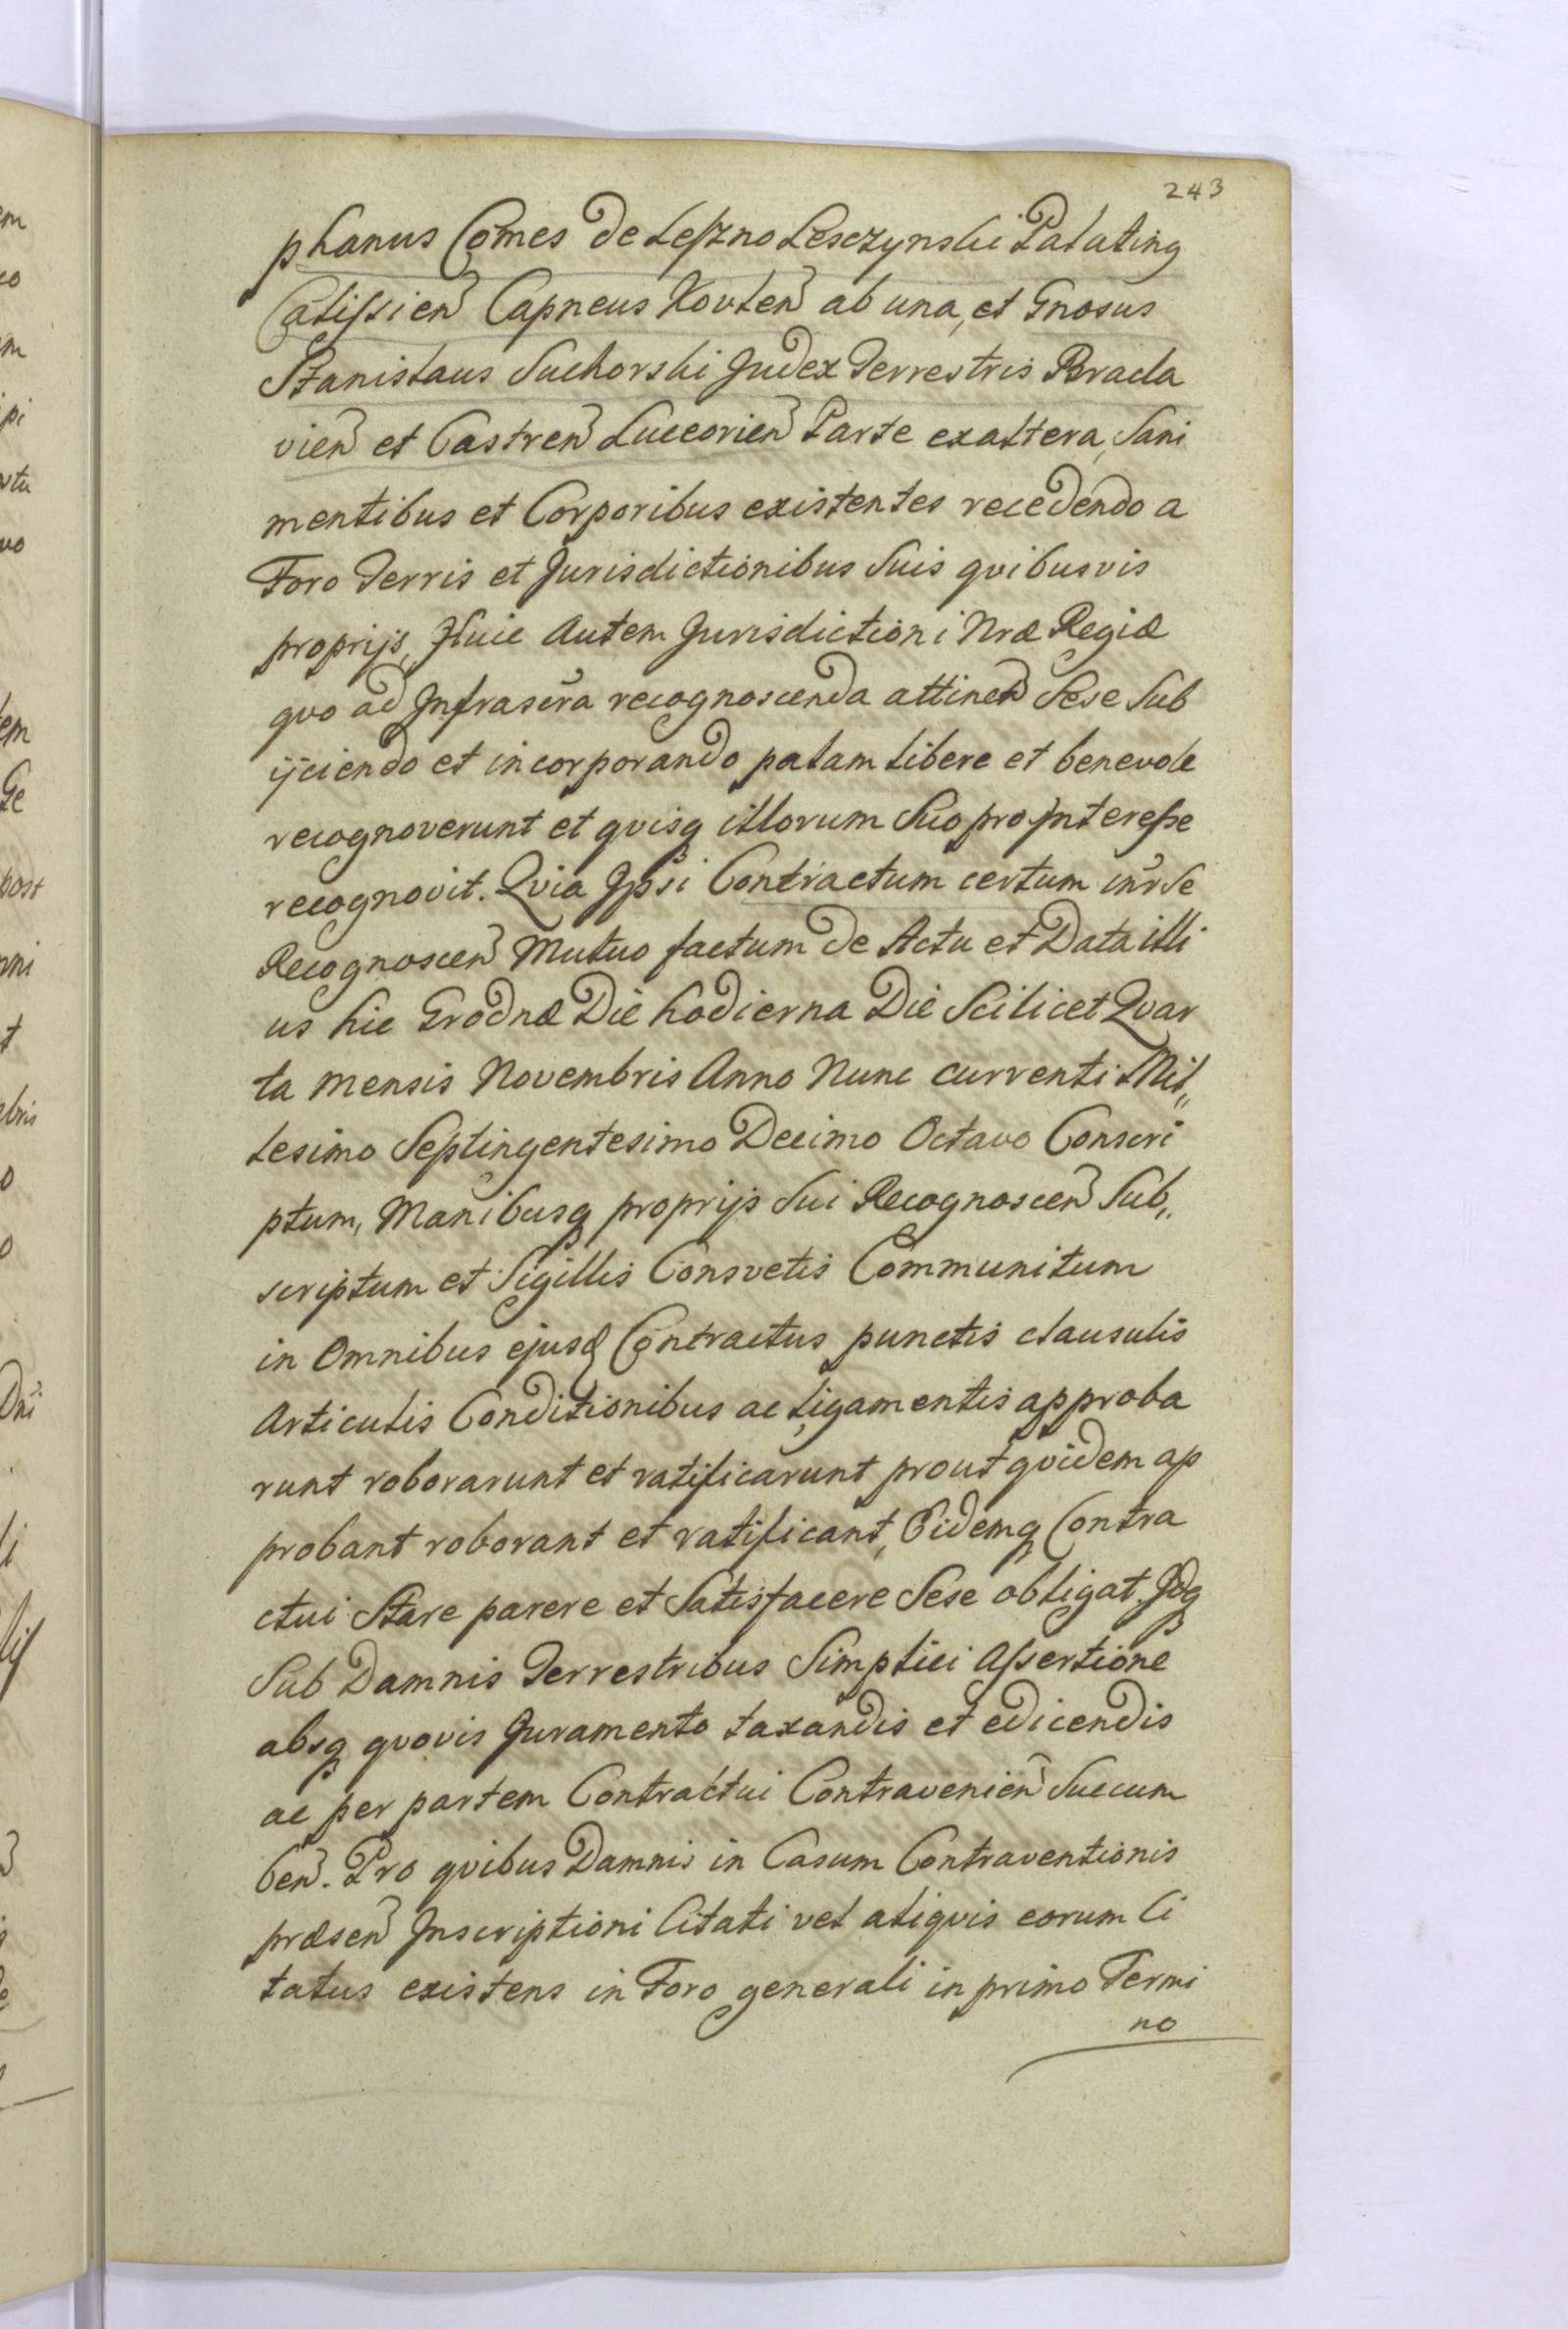 243
phanus Comes de Leszno Lesczynski Palatinq
Calissien Capneus Kovlen ab una, et Gnosus
Stanislaus Suchorski Judex Terrestris Bracla
vien et Castren Luceorien Parte exaltera, Sani
mentibus et Corporibus existentes recedendo a
Foro Terris et Jurisdictionibus Suis qvibusvis
proprijs, Huic Autem Jurisdictioni Nræ Regiæ
qvo ad Infrascra recognoscenda attinen Sese Sub
ijciendo et incorporando palam libere et benevole
recognoverunt et qvisq illorum Suo pro Interesse
recognovit. Qvia Ipsi Contractum certum inr Se
Recognoscen Mutuo factum de Actu et Data illi
us hic Grodnæ Die hodierna Die Scilicet Qvar
ta mensis Novembris Anno Nunc currenti Mil„
lesimo Septingentesimo Decimo Octavo Conscri
ptum, Manibusq proprijs Sui Recognoscen Sub„
scriptum et Sigillis Consvetis Communitum
in Omnibus ejusd Contractus punctis clausulis
Articulis Conditionibus ac ligamentis approba
runt roborarunt et ratificarunt prout qvidem ap
probant roborant et ratificant, Eidemq Contra
ctui Stare parere et Satisfacere Sese obligat. Idq
Sub Damnis Terrestribus Simplici Assertione
absq qvovis Juramento taxandis et edicendis
ac per partem Contractui Contravenien Succum
ben. Pro qvibus Damnis in Casum Contraventionis
præsen Inscriptioni Citati vel aliqvis eorum Ci
tatus existens in Foro generali in primo Termi
no